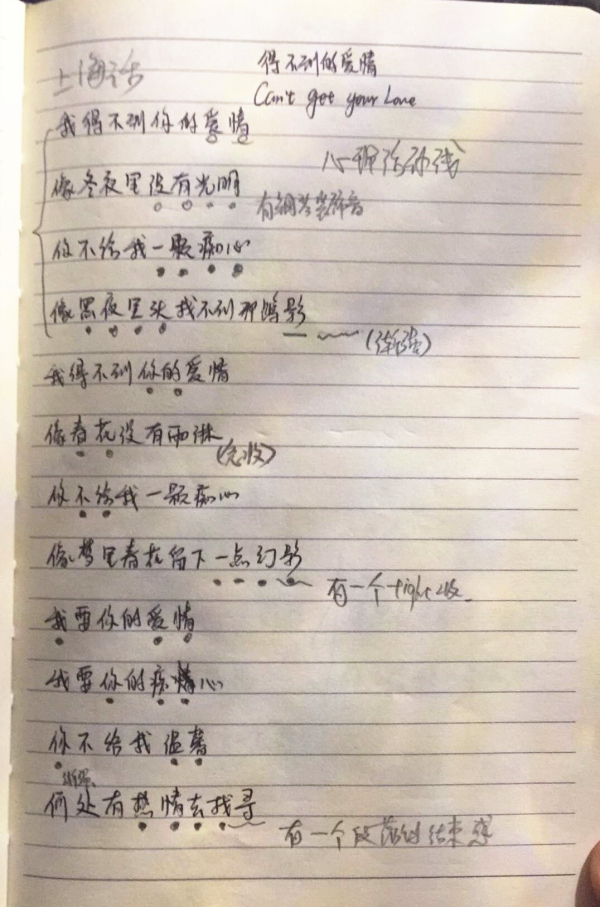 上海话
得不到的爱情
Can't get your Love
我得不到你的爱情
像冬夜里没有光明
你不给我一颗痴心
像黑夜里头找不到那踪影
(渐强)
我得不到你的爱情
像春花没有雨淋
你不给我一颗痴心
像梦里春花留下一点幻影
有一个 收
我要你的爱情
我要你的痴心
你不给我温馨
何处有热情去找寻
有一个段落的结束感